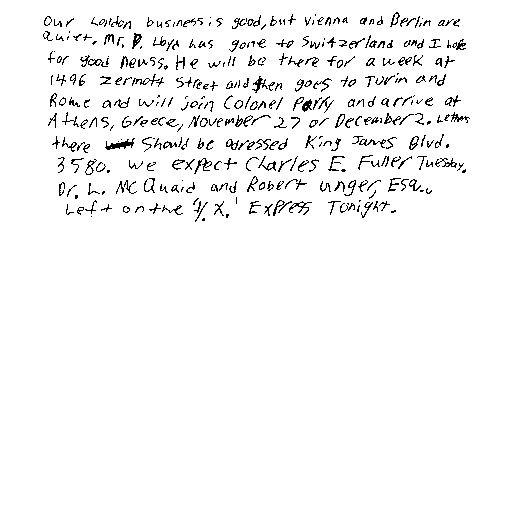 Our London business is good, but Vienna and Berlin are
quiet. Mr. D. Lloyd has gone to Switzerland and I hope
for good newss. He will be there for a week at
1496 Zermott Street and then goes to Turin and
Rome and will join Colonel Parry and arrive at
Athens, Greece, November 27 or December 2. Letters
there should be adressed King James Blvd.
3580. We expect Charles E. Fuller Tuesday.
Dr. L. McQuaid and Robert Unger, Esq.,
Left on the 'Y. X.' Express Tonight.